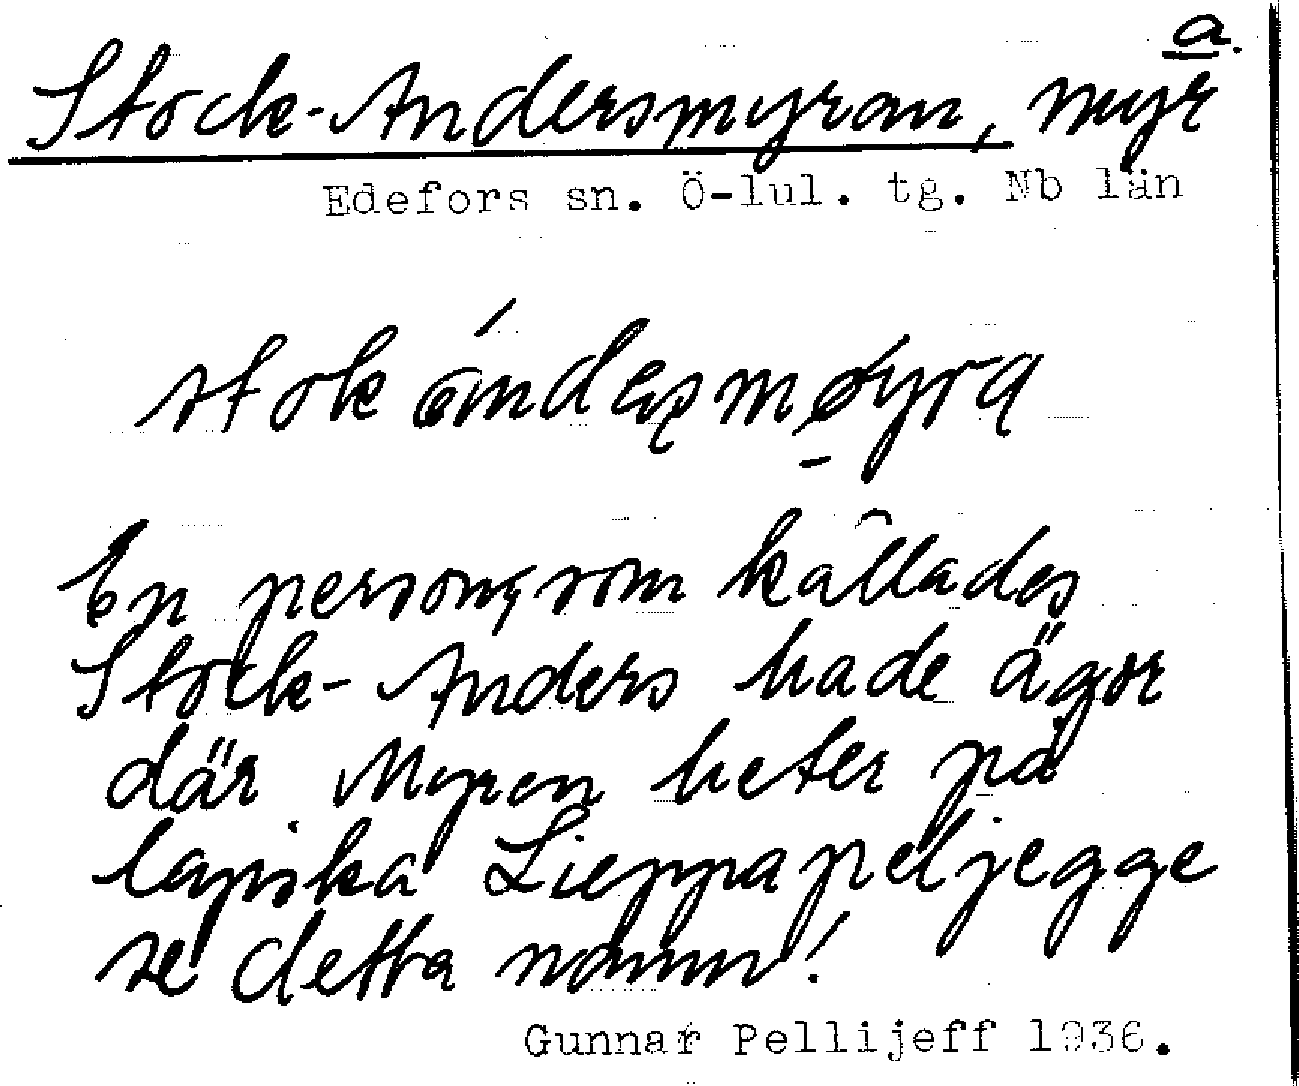 a.
Stock-Andersmyran, myr
Edefors sn. Ö-lul. tg. Nb län
En person, som kallades
Stock-Anders hade ägor
där. Myren heter på
lapska Lieppapeljegge
se detta namn!
Gunnar Pellijeff 1936.